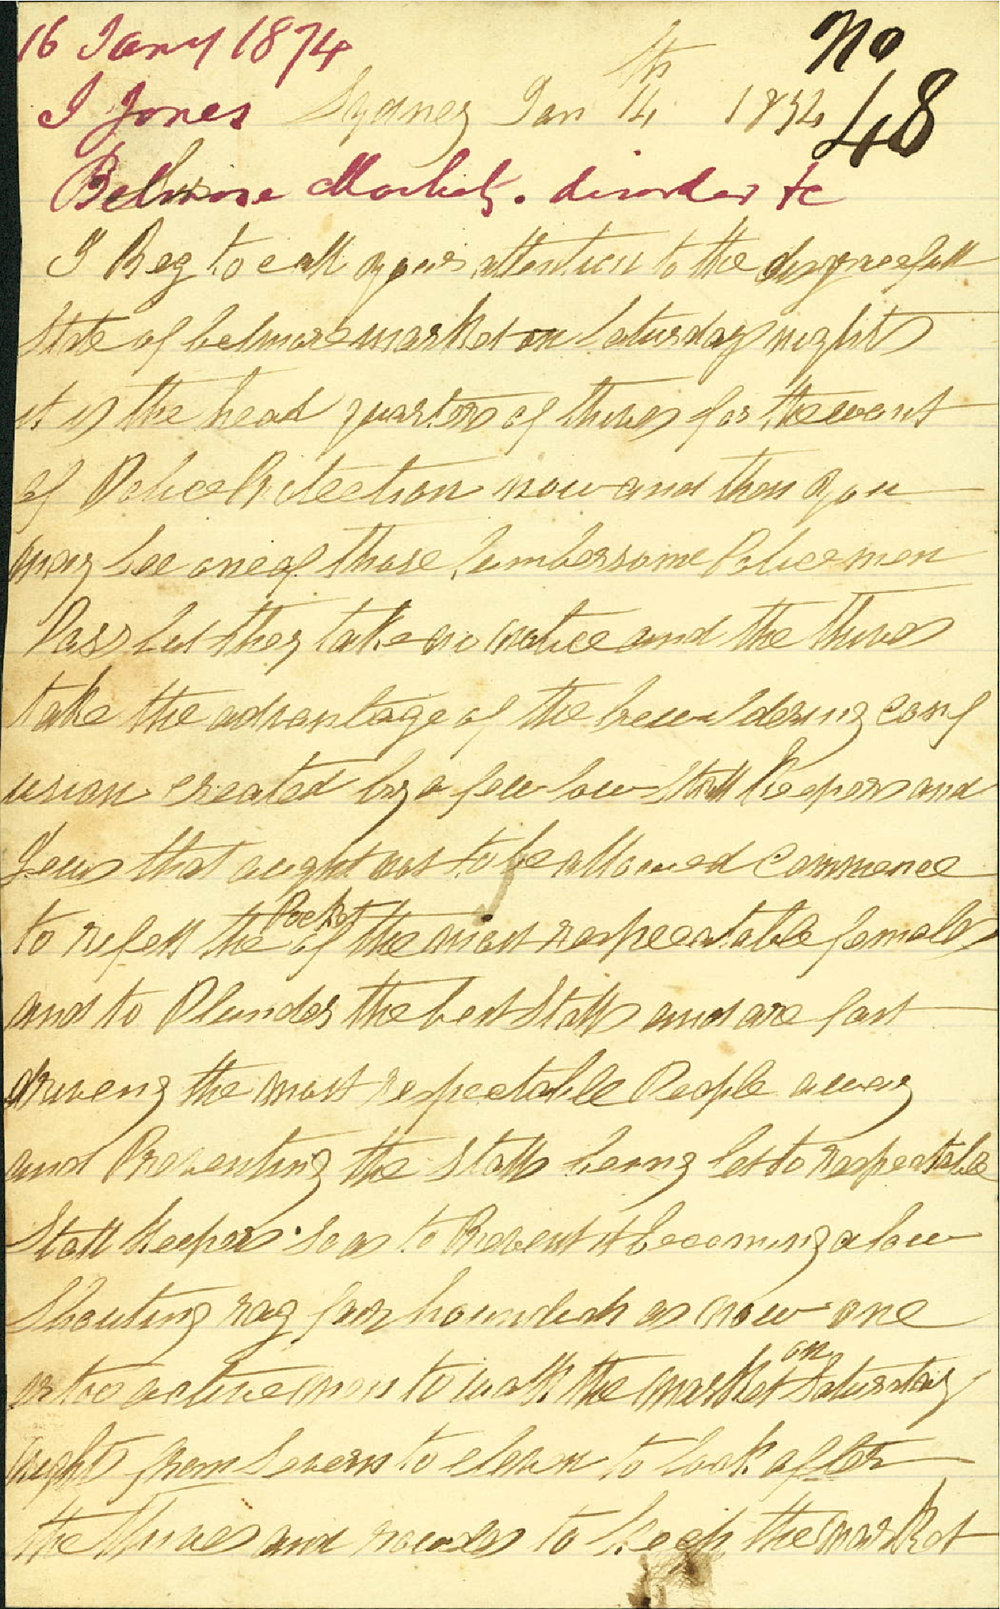 16 Jany 1874
No
48
J Jones
Sydney Jan 14th 1874
Belmore Markets. disorder &c
I Beg to call your attention to the disgracefull
State of belmore market on Saturday nights
it is the head quarters of thives for the want
of Police Protection now and then you
may See one of those lumbersome Policemen
Pass but they take no notice and the thives
take the advantage of the bewildering conf
usion created by a few low Stall Keepers and
Jews that aught not to be allowed commence
to refell the Pocket of the most respeectable females
and to Plunder the best Stalls and are fast
driveng the most respectable People away
and Preventing the Stalls being let to respectable
Stall Keepers So as to Prevent it becoming a low
Shouting rag fair as now one
or too active men to walk the market on Saturday
nights from Severn to eleven to look after
the thives and rowdes to keep the market